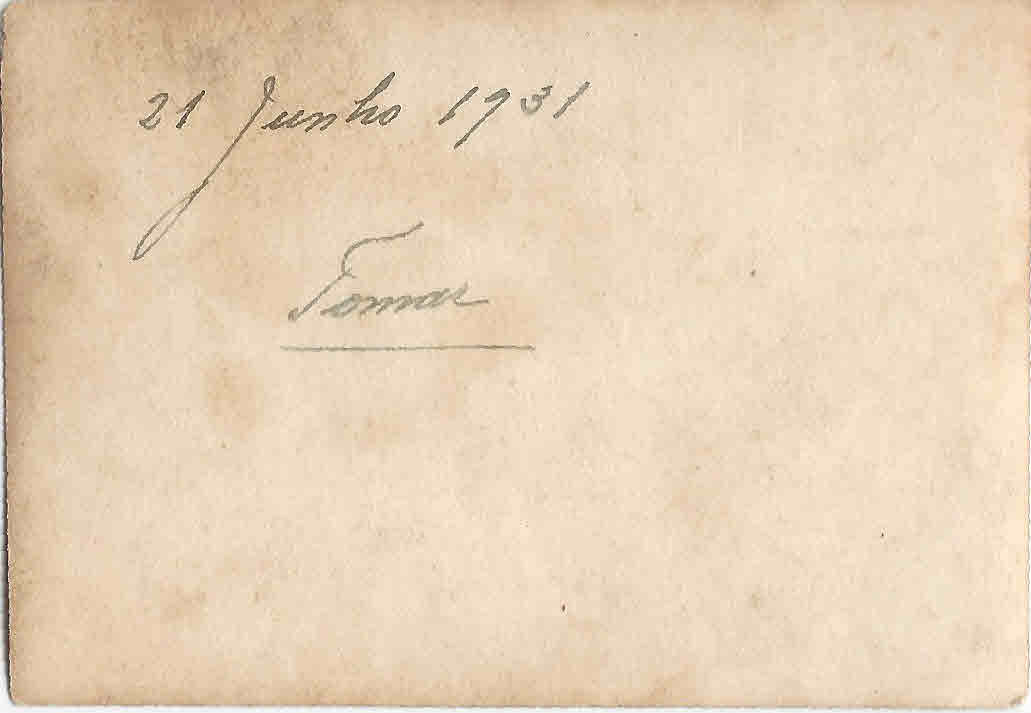 21 Junho 1931
Tomar